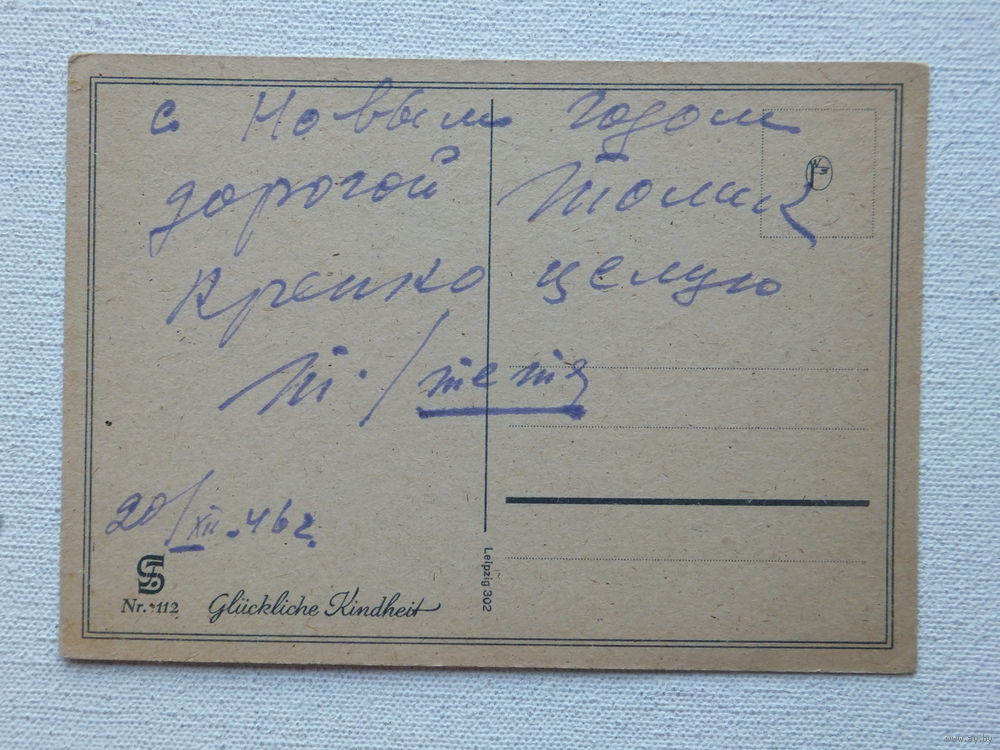 с Новым годом
дорогой Толик
Крепко целую
Т. / тетя
20/XII.46 г.
Nr. 112
Glückliche Kindheit
Leipzig 302
www.ay.by